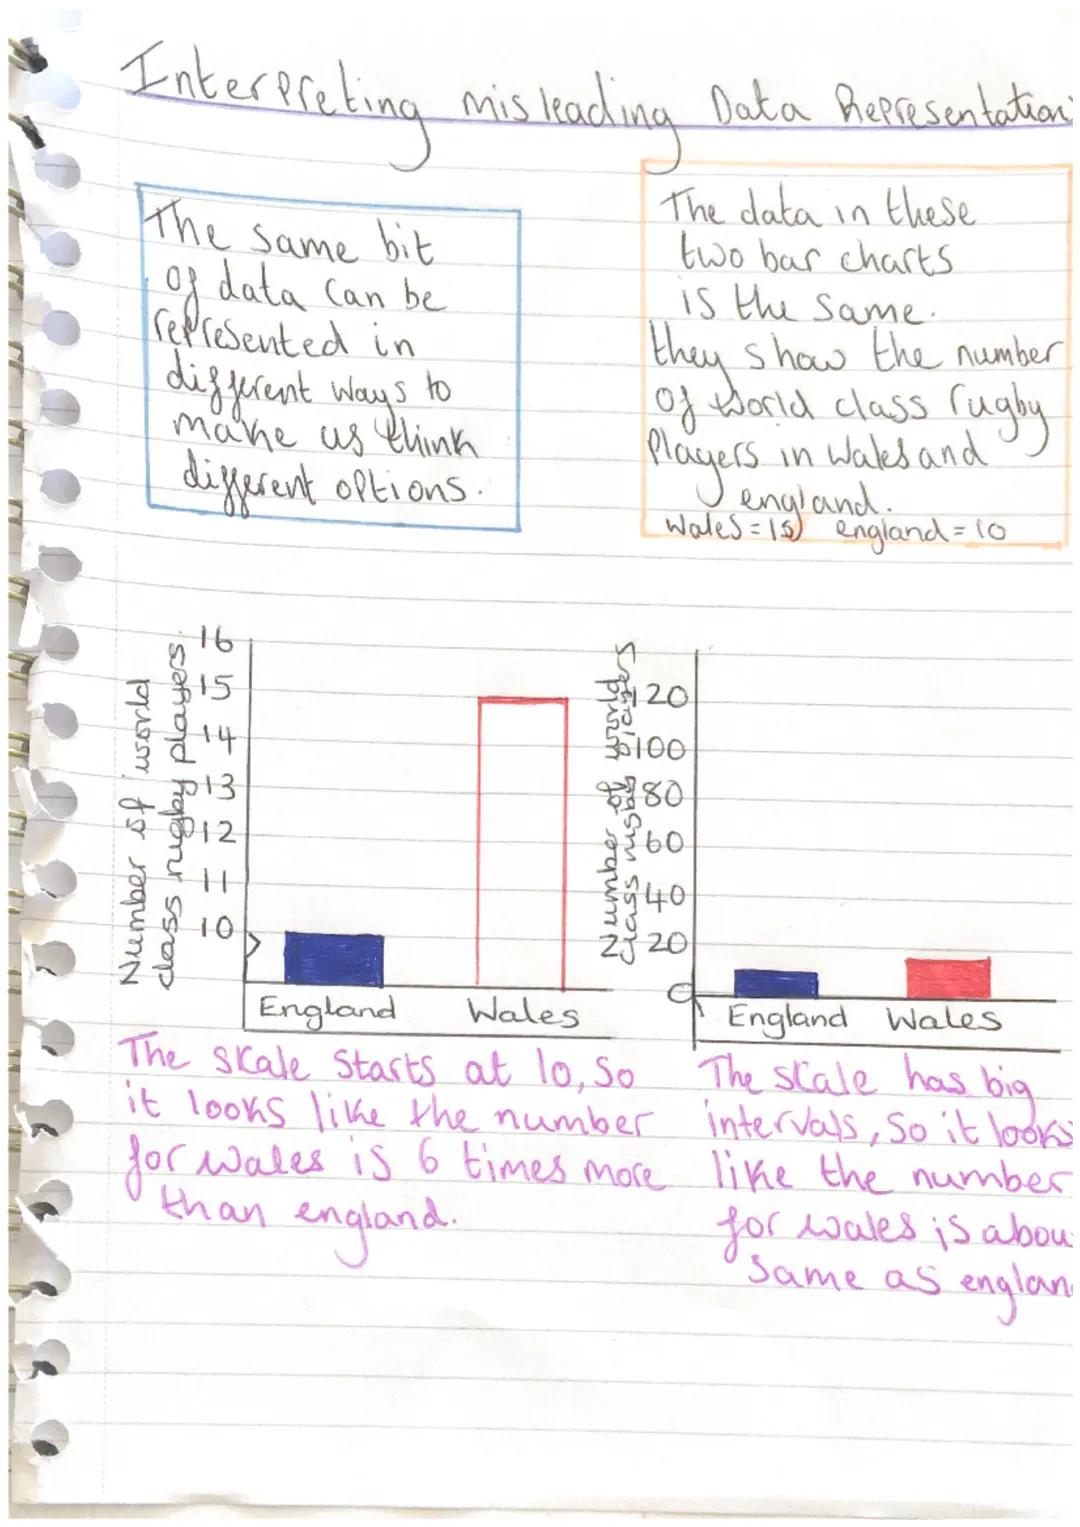 Interpreting misleading Data Representation
The same bit
of data can be
represented in
different ways to
make us think
different options.
The data in these
two bar charts
is the same.
they show the number
of world class rugby
Players in Wales and
england.
Wales = 15 england = 10
Number of world
class rugby players.
16
15
14
13
12
11
10
England Wales
Number of world
class rugby players
120
100
80
60
40
20
0
England Wales
The skale starts at 10, so
it looks like the number
for wales is 6 times more
than england.
The skale has big
intervals, so it looks
like the number
for wales is abou
same as englan